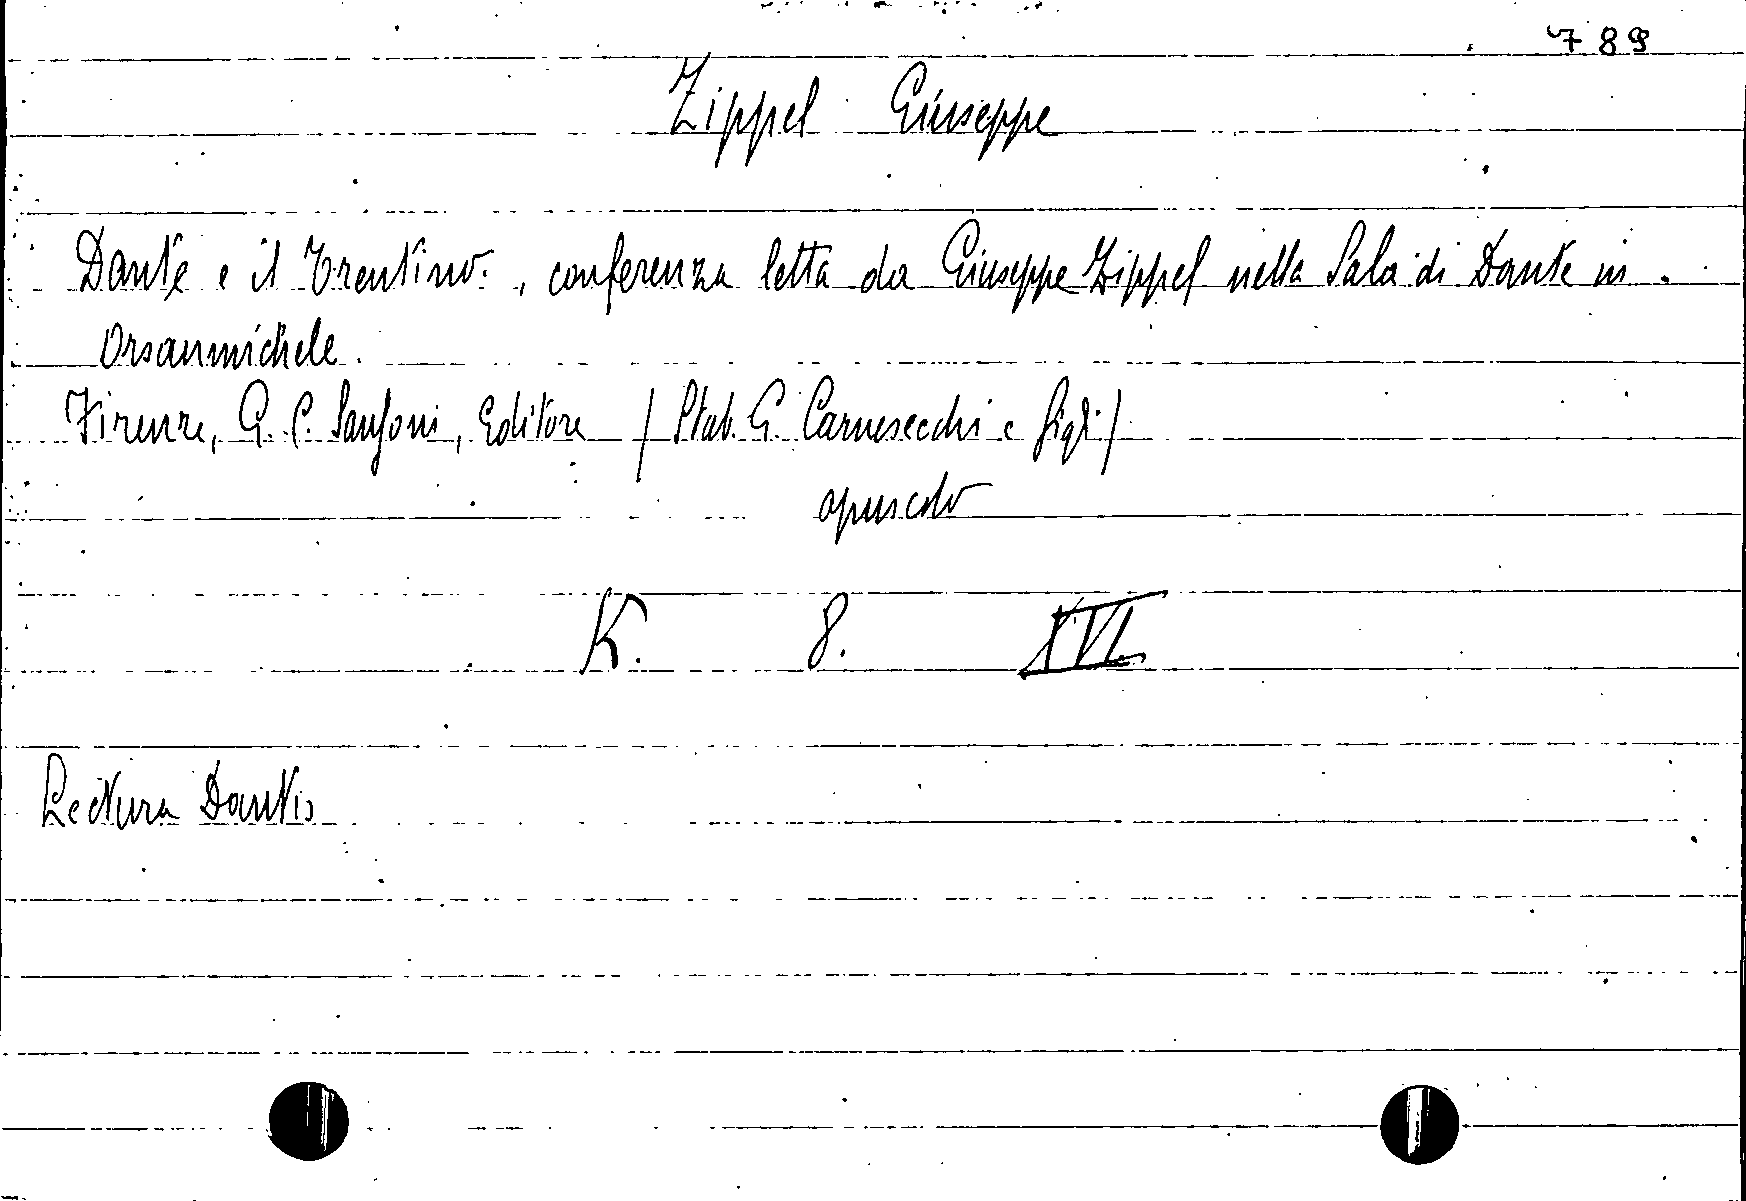 789
Zippel Giuseppe
Dante e il Trentino. , conferenza letta da Giuseppe Zippel nella Sala di Dante in
Orsanmichele.
Firenze, G. C. Sansoni, Editore / Stab. G. Carnesecchi e figli /
opuscolo
K. 8. XVI
Lectura Dantis